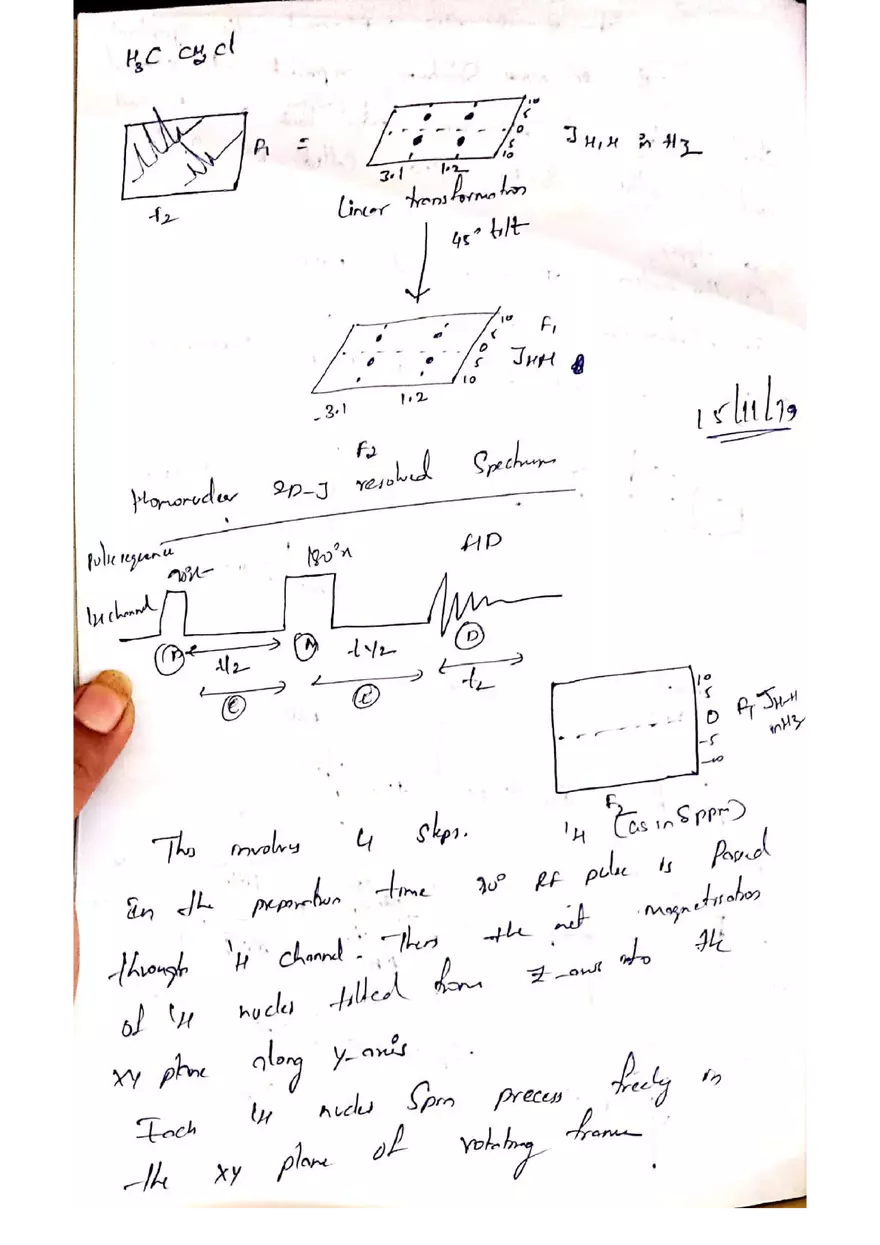 H3C CH2Cl
F1 =
f2
10
5
0
5
10
JH,H in Hz
3.1 1.2
Linear transformation
45° tilt
10
5
0
5
10
F1
JHH
3.1 1.2
F2
15/11/19
Homonuclear 2D-J resolved Spectrum
Pulse sequence
90°x 180°x FID
1H channel
P t1/2 M t1/2 D
E E t2
10
5
0
-5
-10
F1 JH-H
in Hz
F2
1H (as in δ ppm)
This involves 4 steps.
In the preparation time 90° RF pulse is Passed
through 1H channel. Thers the net magnetisation
of 1H nuclei tilted from Z-axis into the
xy plane along y-axis.
Each 1H nuclei Spin precess freely in
the xy plane of rotating frame.